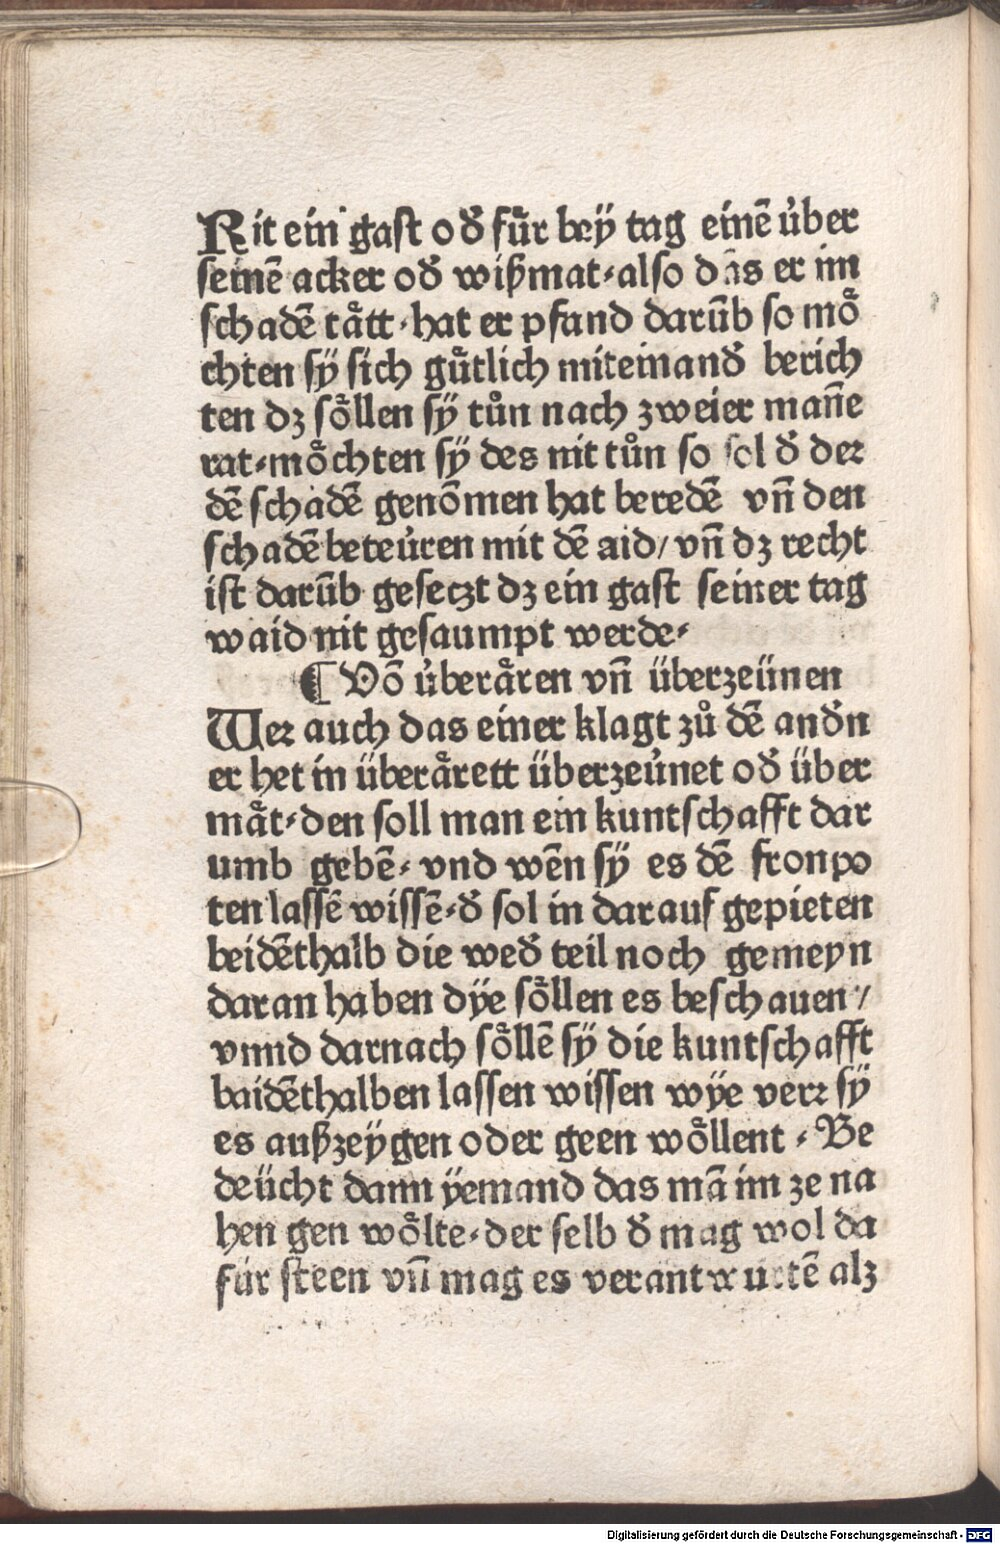 Rit ein gast od̄ fůr bey tag einē ůber
seinē acker od̄ wißmat⸗also das er im
schadē tått⸗hat er pfand darūb so mỏ
chten sÿ sich gůtlich miteinand̄ berich
ten dz sỏllen sÿ tůn nach zweier mañe
rat⸗mỏchten sÿ des nit tůn so sol d̄ der
dē schadē genōmen hat beredē vñ den
schadē beteůren mit dē aid/ vñ dz recht
ist darūb gesetzt dz ein gast seiner tag
waid nit gesaumpt werde⸗
¶ Vō ůberåren vñ überzeünen
Wer auch das einer klagt zů dē and̄n
er het in überårett überzeůnet od̄ über
måt⸗den soll man ein kuntschafft dar
umb gebē⸗ vnd wēn sÿ es dē fronpo
ten lassē wissē⸗d̄ sol in darauf gepieten
beidēthalb die wed̄ teil noch gemeyn
daran haben dÿe sỏllen es beschauen /
vnnd darnach sỏllē sÿ die kuntschafft
baidēthalben lassen wissen wÿe verr sÿ
es außzeÿgen oder geen wỏllent ⸗ Be
deücht dann ÿemand das mā im ze na
hen gen wỏlte⸗der selb d̄ mag wol da
für steen vñ mag es verantwurtē alz
Digitalisierung gefördert durch die Deutsche Forschungsgemeinschaft - DFG